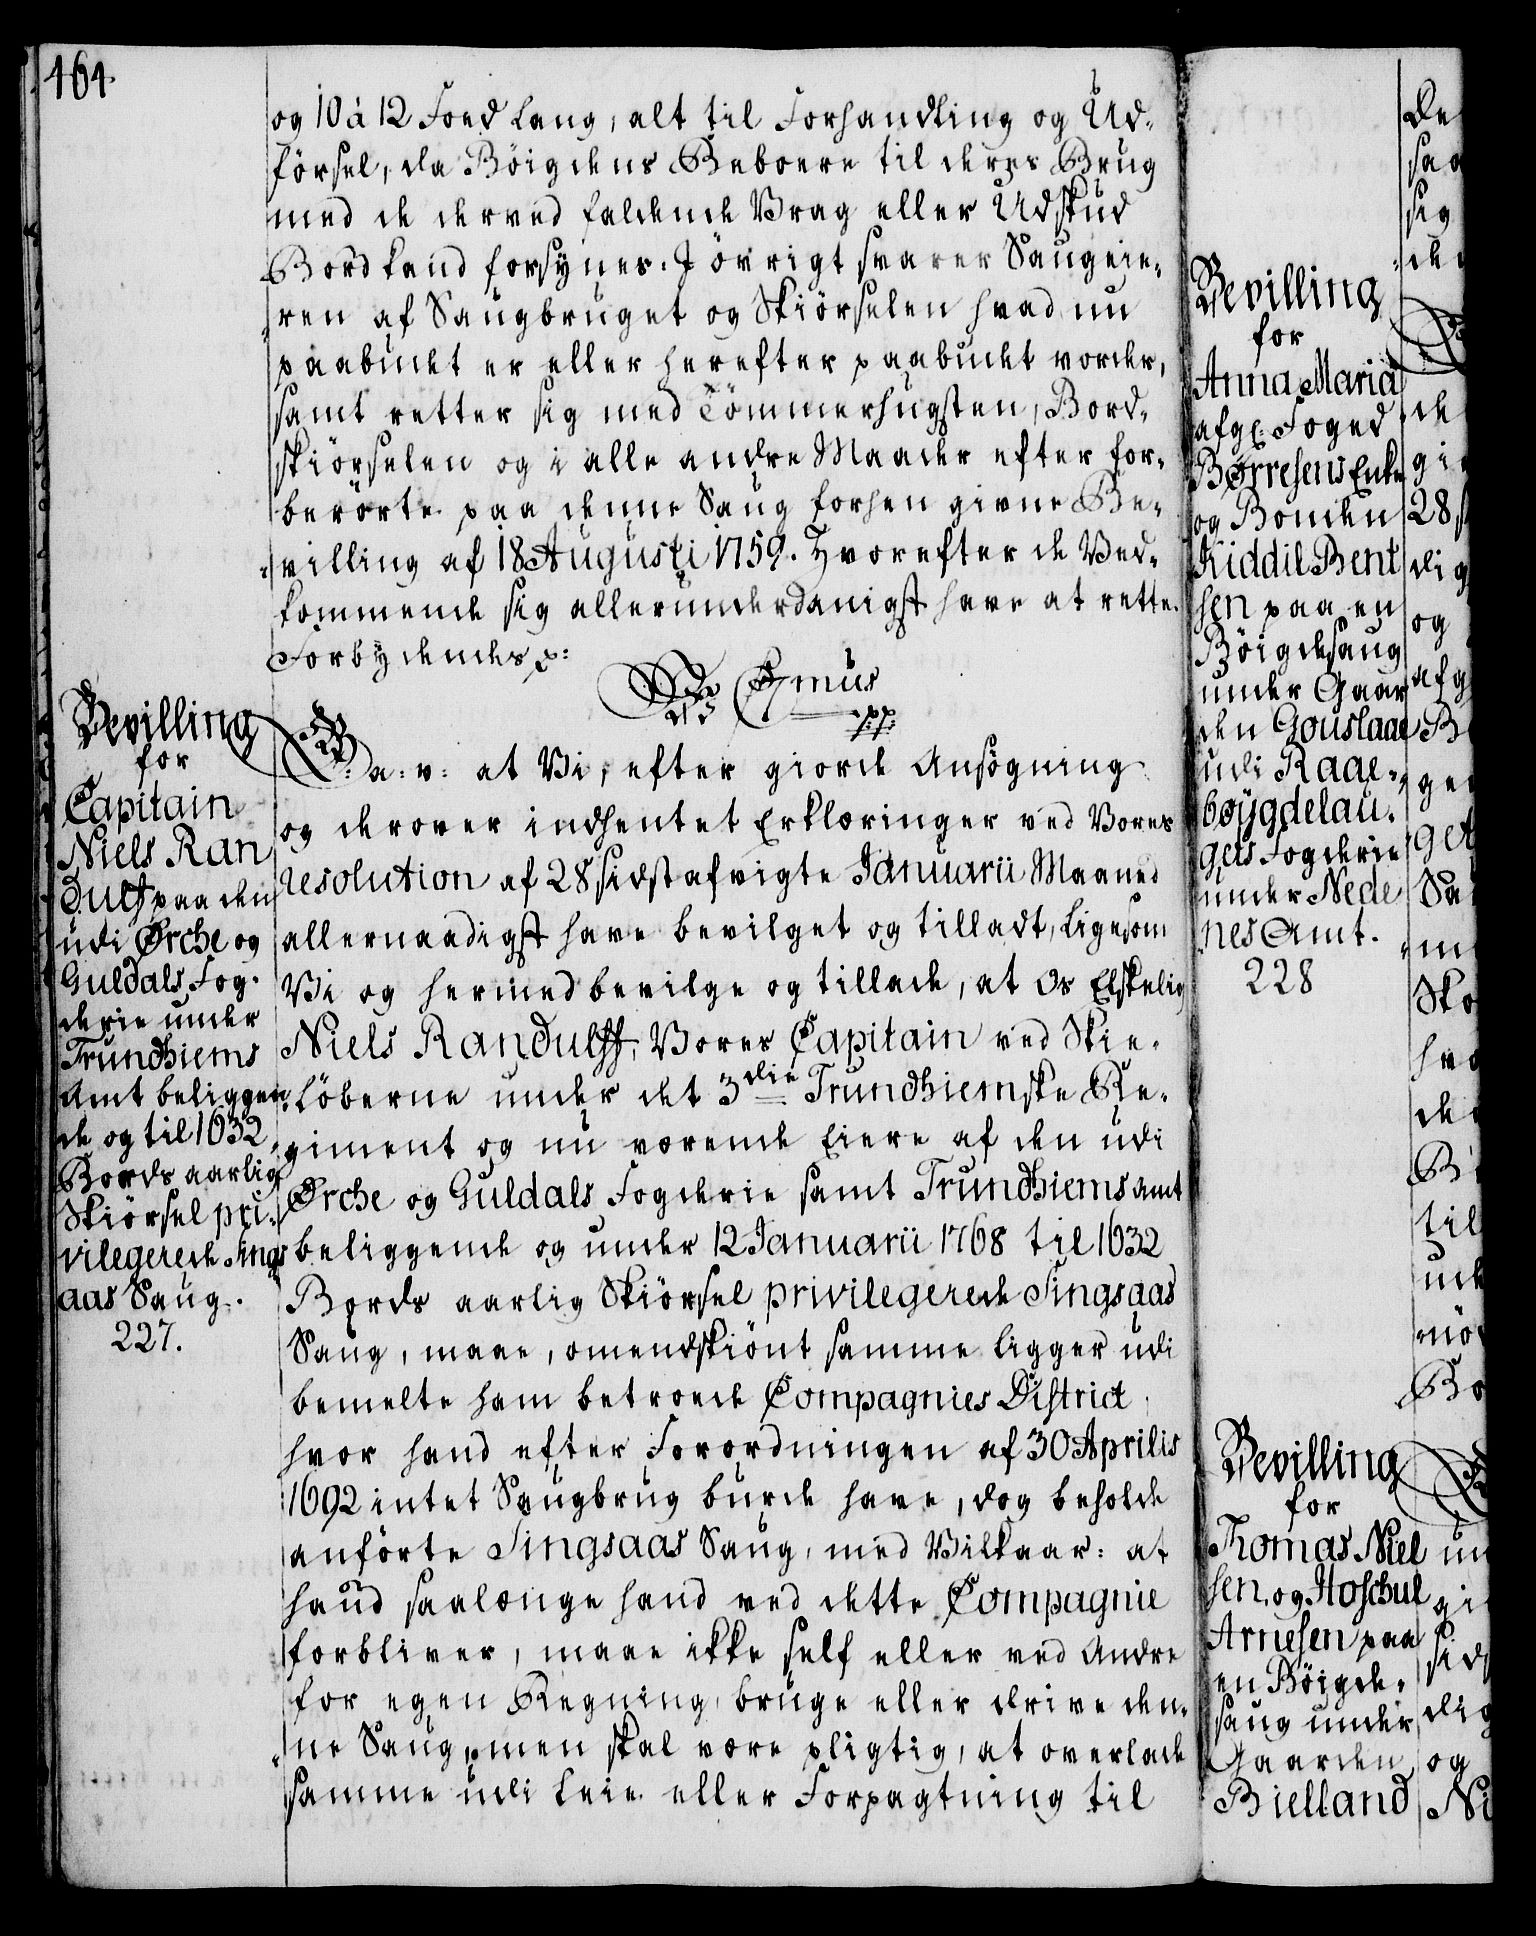 464.
og 10 à 12 Foed Lang, alt til Forhandling og Ud-
försel, da Böigdens Beboere til deres Brug
med de derved faldende Vrag eller Udskud
Bord kand forsÿnes. I övrigt svarer Saugeie-
ren af Saugbruget og Skiörselen hvad nu
paabudet er eller herefter paabudet vorder,
samt retter sig med Tömmerhugsten, Bord-
skiörselen og i alle andre Maader efter for-
berörte paa denne Saug forhen givne Be-
villing af 18 Augusti 1759. Hvorefter de Ved-
kommende sig allerunderdanigst have at rette.
Forbydendes p:
Vs Cÿmus
pp:
Bevilling
for
Capitain
Niels Ran
Dulff paa den
udi Ørche og
Guldals Fog-
derie under
Trundhiems
Amt beliggen-
de og til 1632
Bords aarlig
Skiörsel pri-
vilegerede Sings
aas Saug.
227.
G: a: v: at Vi, efter giorde Ansögning
og derover indhentet Erklæringer ved Vores
resolution af 28 sidstafvigte Januarii Maaned
allernaadigst have bevilget og tilladt, ligesom
Vi og hermed bevilge og tillade, at Os Elskelig
Niels Randulff, Vores Capitain ved Skie-
Löberne under det 3die Trundhiemske Re-
giment og nu værende Eiere af den udi
Ørche og Guldals Fogderie samt Trundhiems Amt
beliggende og under 12 Januarii 1768 til 1632
Bords aarlig Skiörsel privilegerede Singsaas
Saug, maae, omendskiönt samme ligger udi
bemelte ham betroede Compagnies District
hvor hand efter Forordningen af 30 Aprilis
1692 intet Saugbrug burde have, dog beholde
anförte Singsaas Saug, med Vilkaar: at
hand saalænge hand ved dette Compagnie
forbliver, maae ikke self eller ved Andre
for egen Regning bruge eller drive den-
ne Saug, men skal være pligtig, at overlade
samme udi Leie eller Forpagtning til
Bevilling
for
Anna Maria
afg: Foged
Børresens Enke
og Bonden
Kiddil Bent
sen paa en
Böigdesaug
under Gaar
den Gouslaae
udi Raae-
böÿgdelau-
gets Fogderie
under Nede
nes Amt.
228
Bevilling
for
Thomas Niel
sen og Hoschul
Arnesen paa
en Böigde-
saug under
Gaarden
Bielland